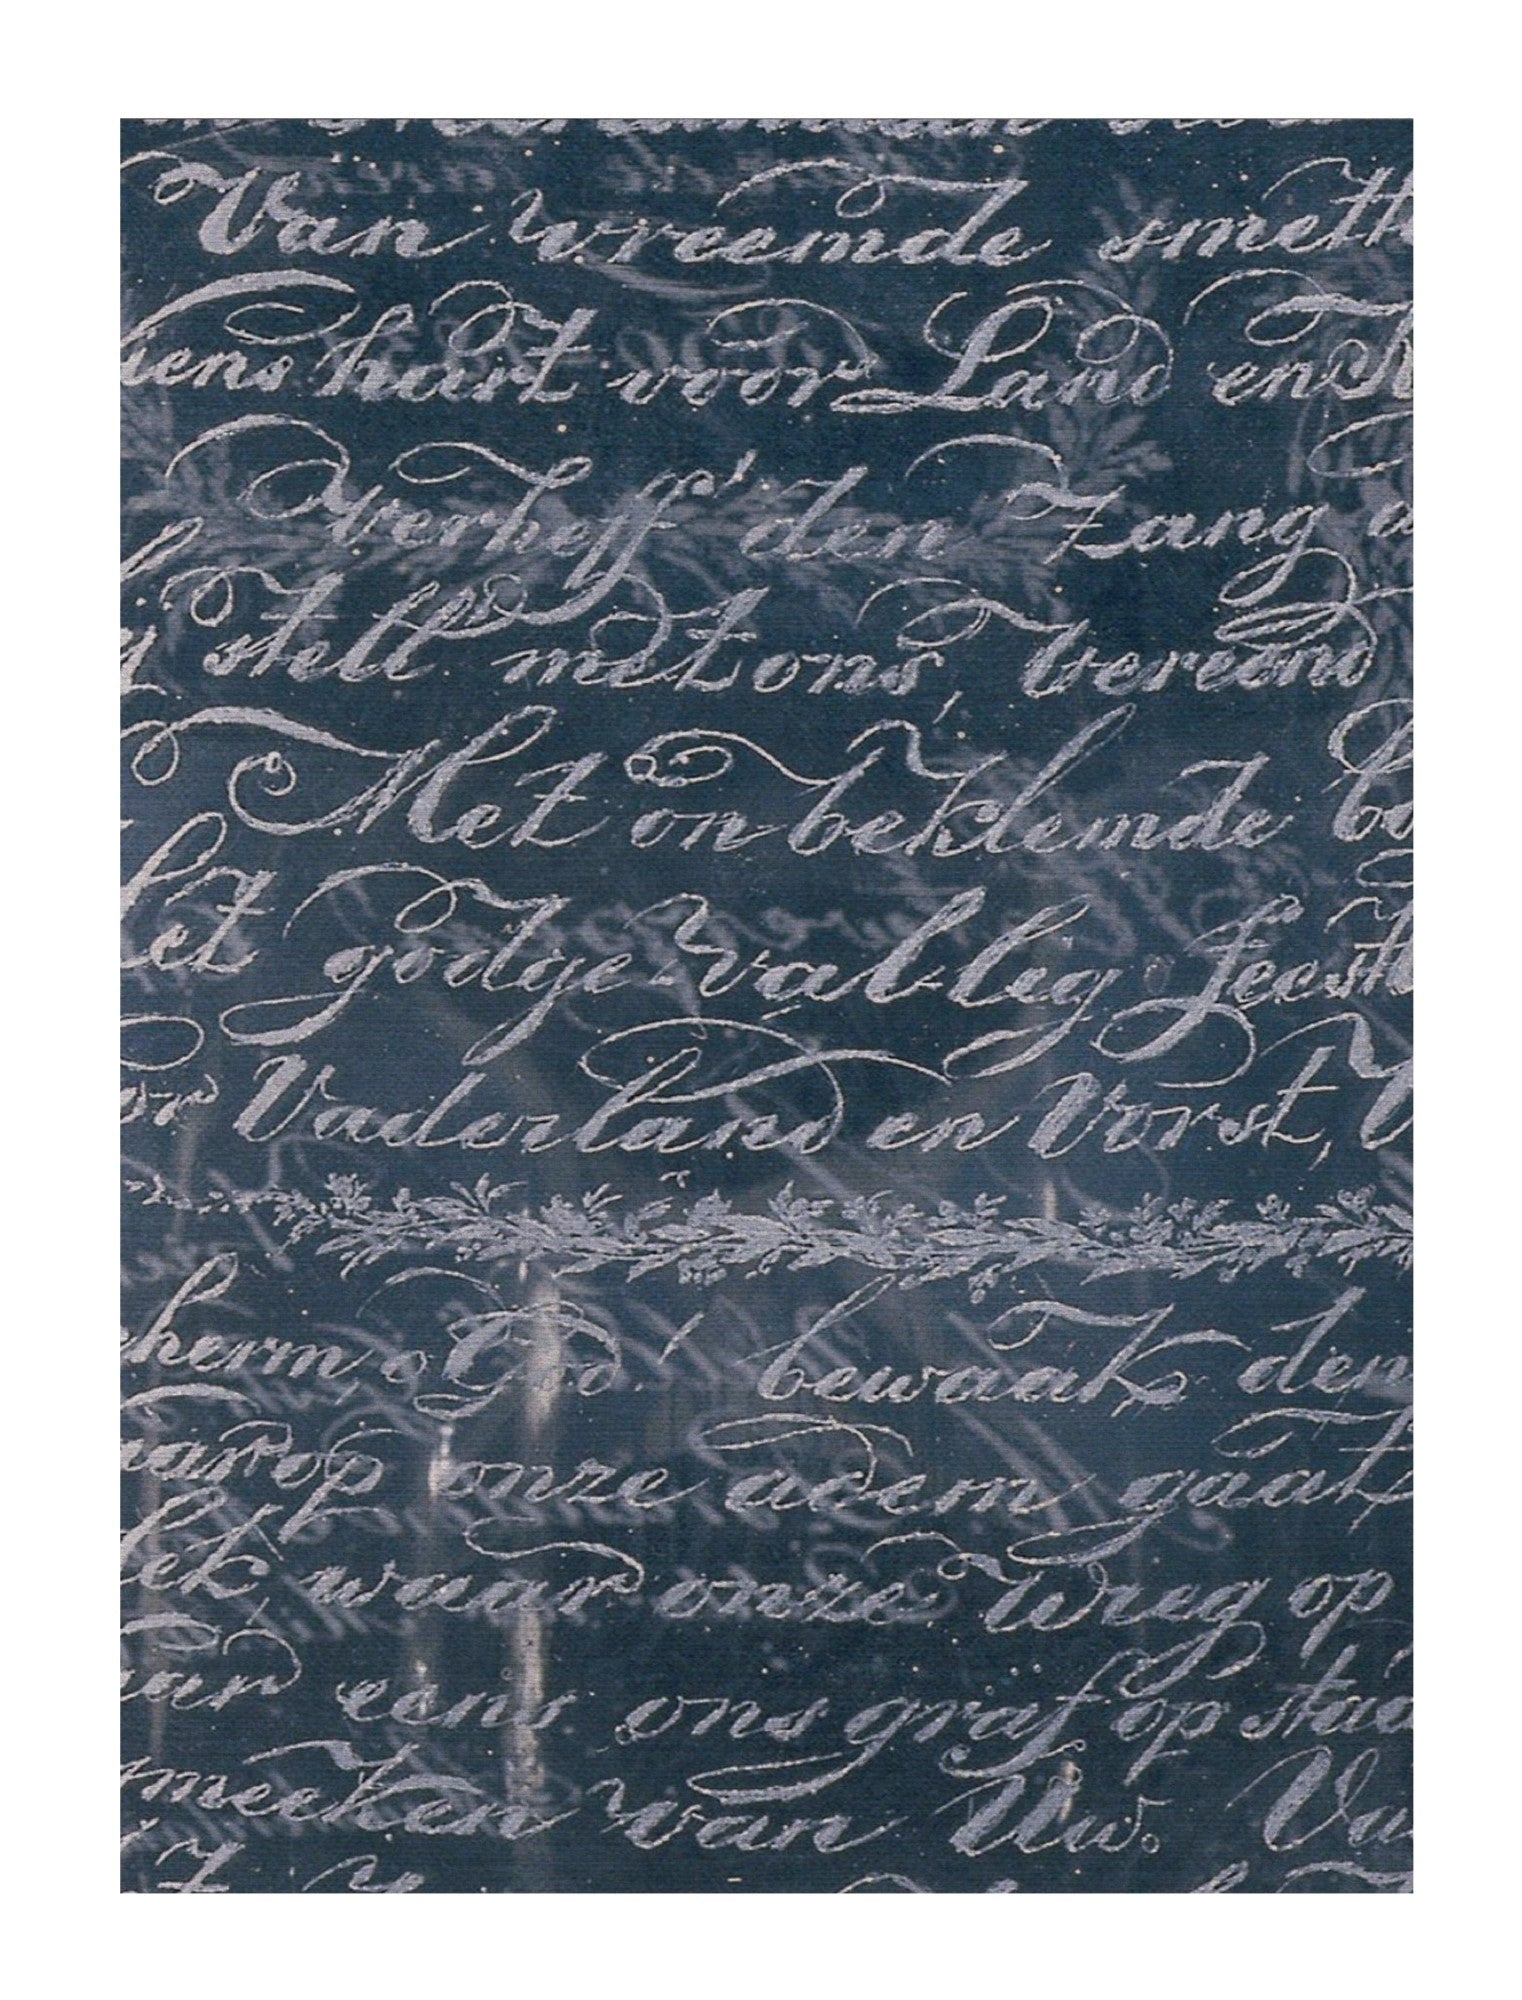 Van vreemde smette
iens hart voor Land en K
verheff' den Zang
stell' met ons, vereend
Met onbeklemde bo
het godgevallig feest
or Vaderland en Vorst, V
cherm o God! bewaak den
aarop onze adem gaat
lek waar onze wieg op
aar eens ons graf op staa
meeken van Uw. Va